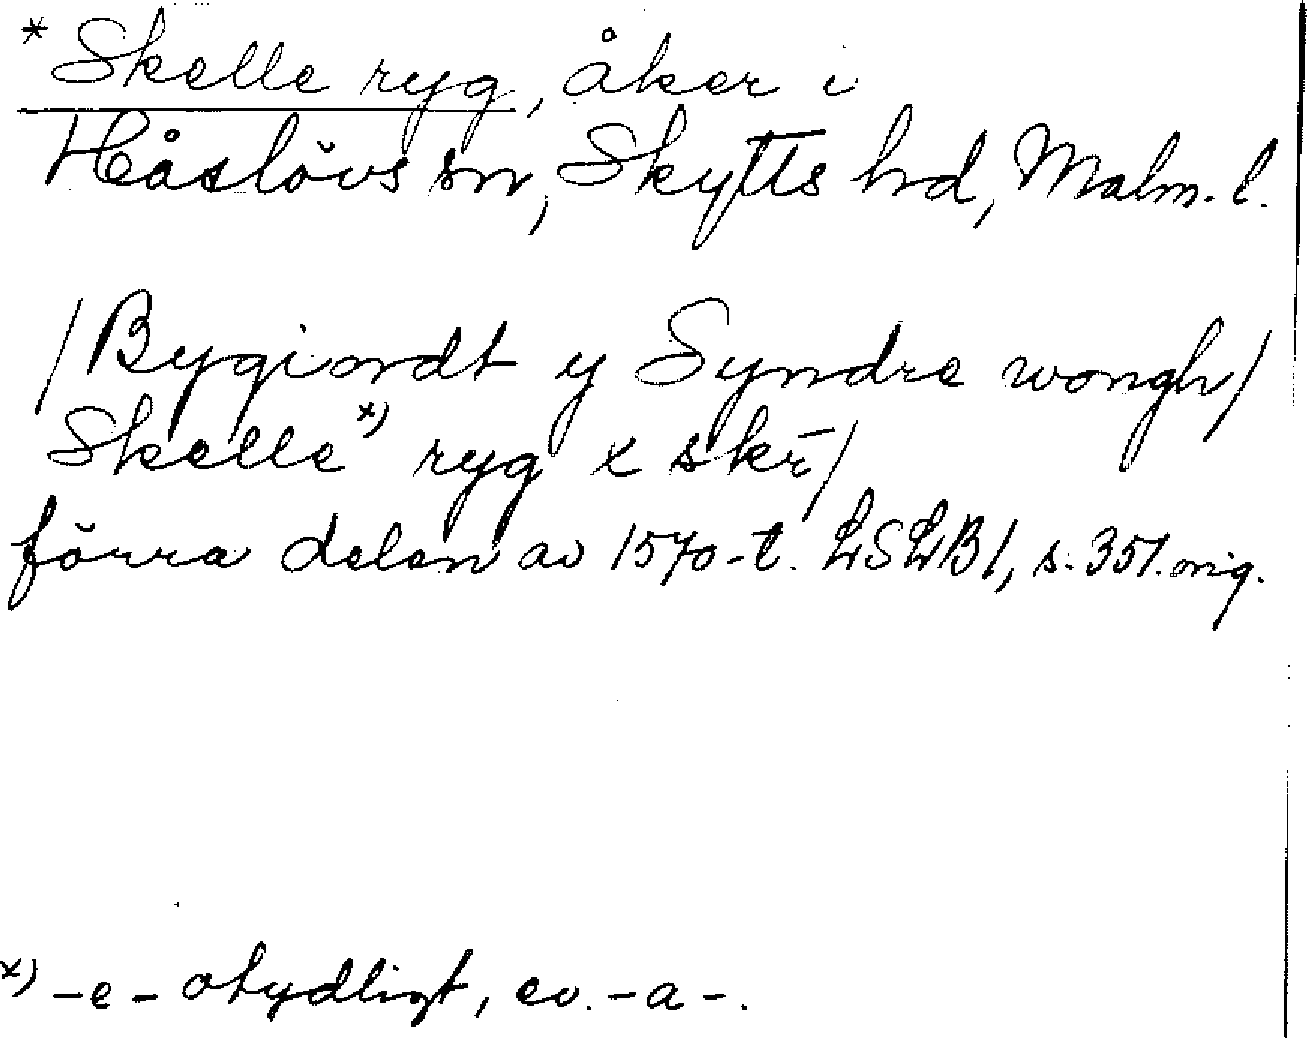 * Skelle ryg, åker i
Håslövs sn, Skytts hd, Malm. l.
/Bygiordt y Syndre wongh/
Skelle x) ryg x skr̄/
förra delen av 1570-t. LSLB1, s. 351. orig.
x) -e- otydligt, ev. -a-.